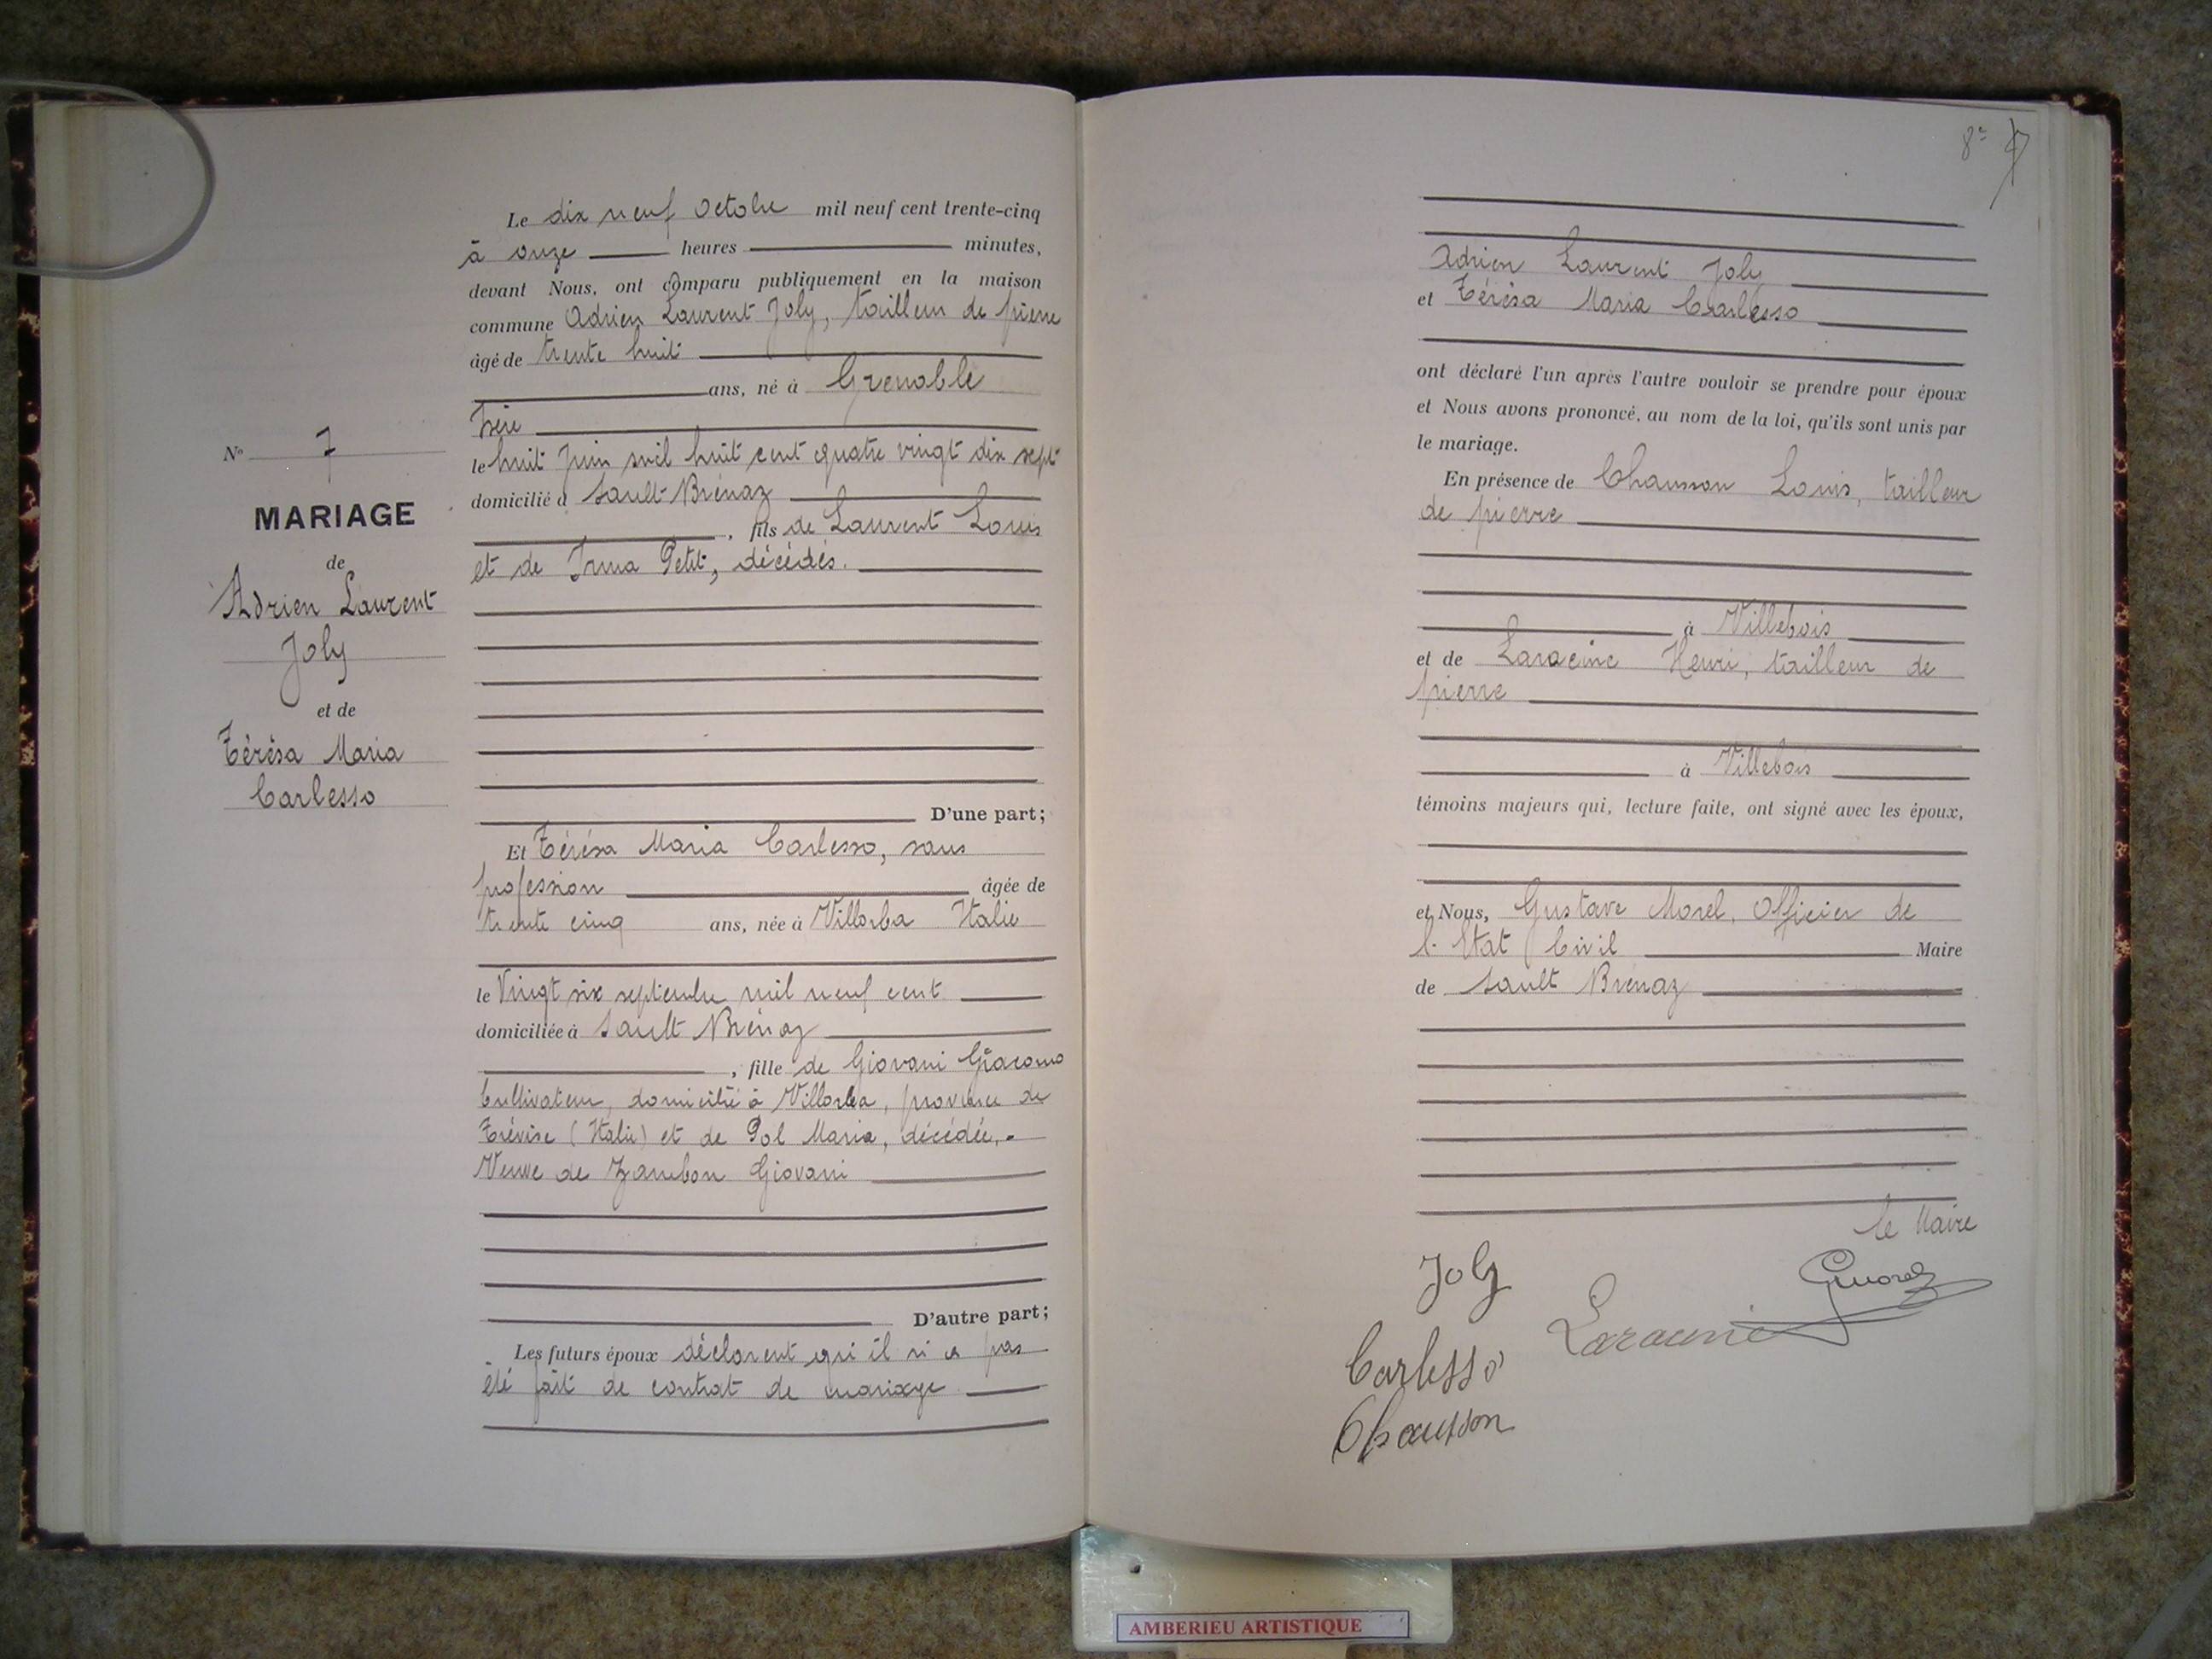 Le dix neuf Octobre mil neuf cent trente-cinq
à onze heures minutes,
devant Nous, ont comparu publiquement en la maison
commune Adrien Laurent Joly, tailleur de pierre
âgé de trente huit
ans, né à Grenoble
Isère
le huit Juin mil huit cent quatre vingt dix sept
domicilié à Sault-Brénaz
, fils de Laurent Louis
et de Irma Petit, décédés.
N° 7
MARIAGE
de
Adrien Laurent
Joly
et de
Térésa Maria
Carlesso
D'une part;
Et Térésa Maria Carlesso, sans
profession âgée de
trente cinq ans, née à Villorba Italie
le Vingt six septembre mil neuf cent
domiciliée à Sault Brénaz
, fille de Giovani Giacomo
Cultivateur, domicilié à Villorba, province de
Trévise (Italie) et de Pol Maria, décédée,
Veuve de Zambon Giovani
D'autre part;
Les futurs époux déclarent qu'il n'a pas
été fait de contrat de mariage
8e
Adrien Laurent Joly
et Térésa Maria Carlesso
ont déclaré l'un après l'autre vouloir se prendre pour époux
et Nous avons prononcé, au nom de la loi, qu'ils sont unis par
le mariage.
En présence de Chausson Louis, tailleur
de pierre
à Villebois
et de Laracine Henri, tailleur de
pierre
à Villebois
témoins majeurs qui, lecture faite, ont signé avec les époux,
et Nous, Gustave Morel, Officier de
l'Etat Civil Maire
de Sault Brénaz
le Maire
Joly
GMorel
Laracine
Carlesso
Chausson
AMBERIEU ARTISTIQUE